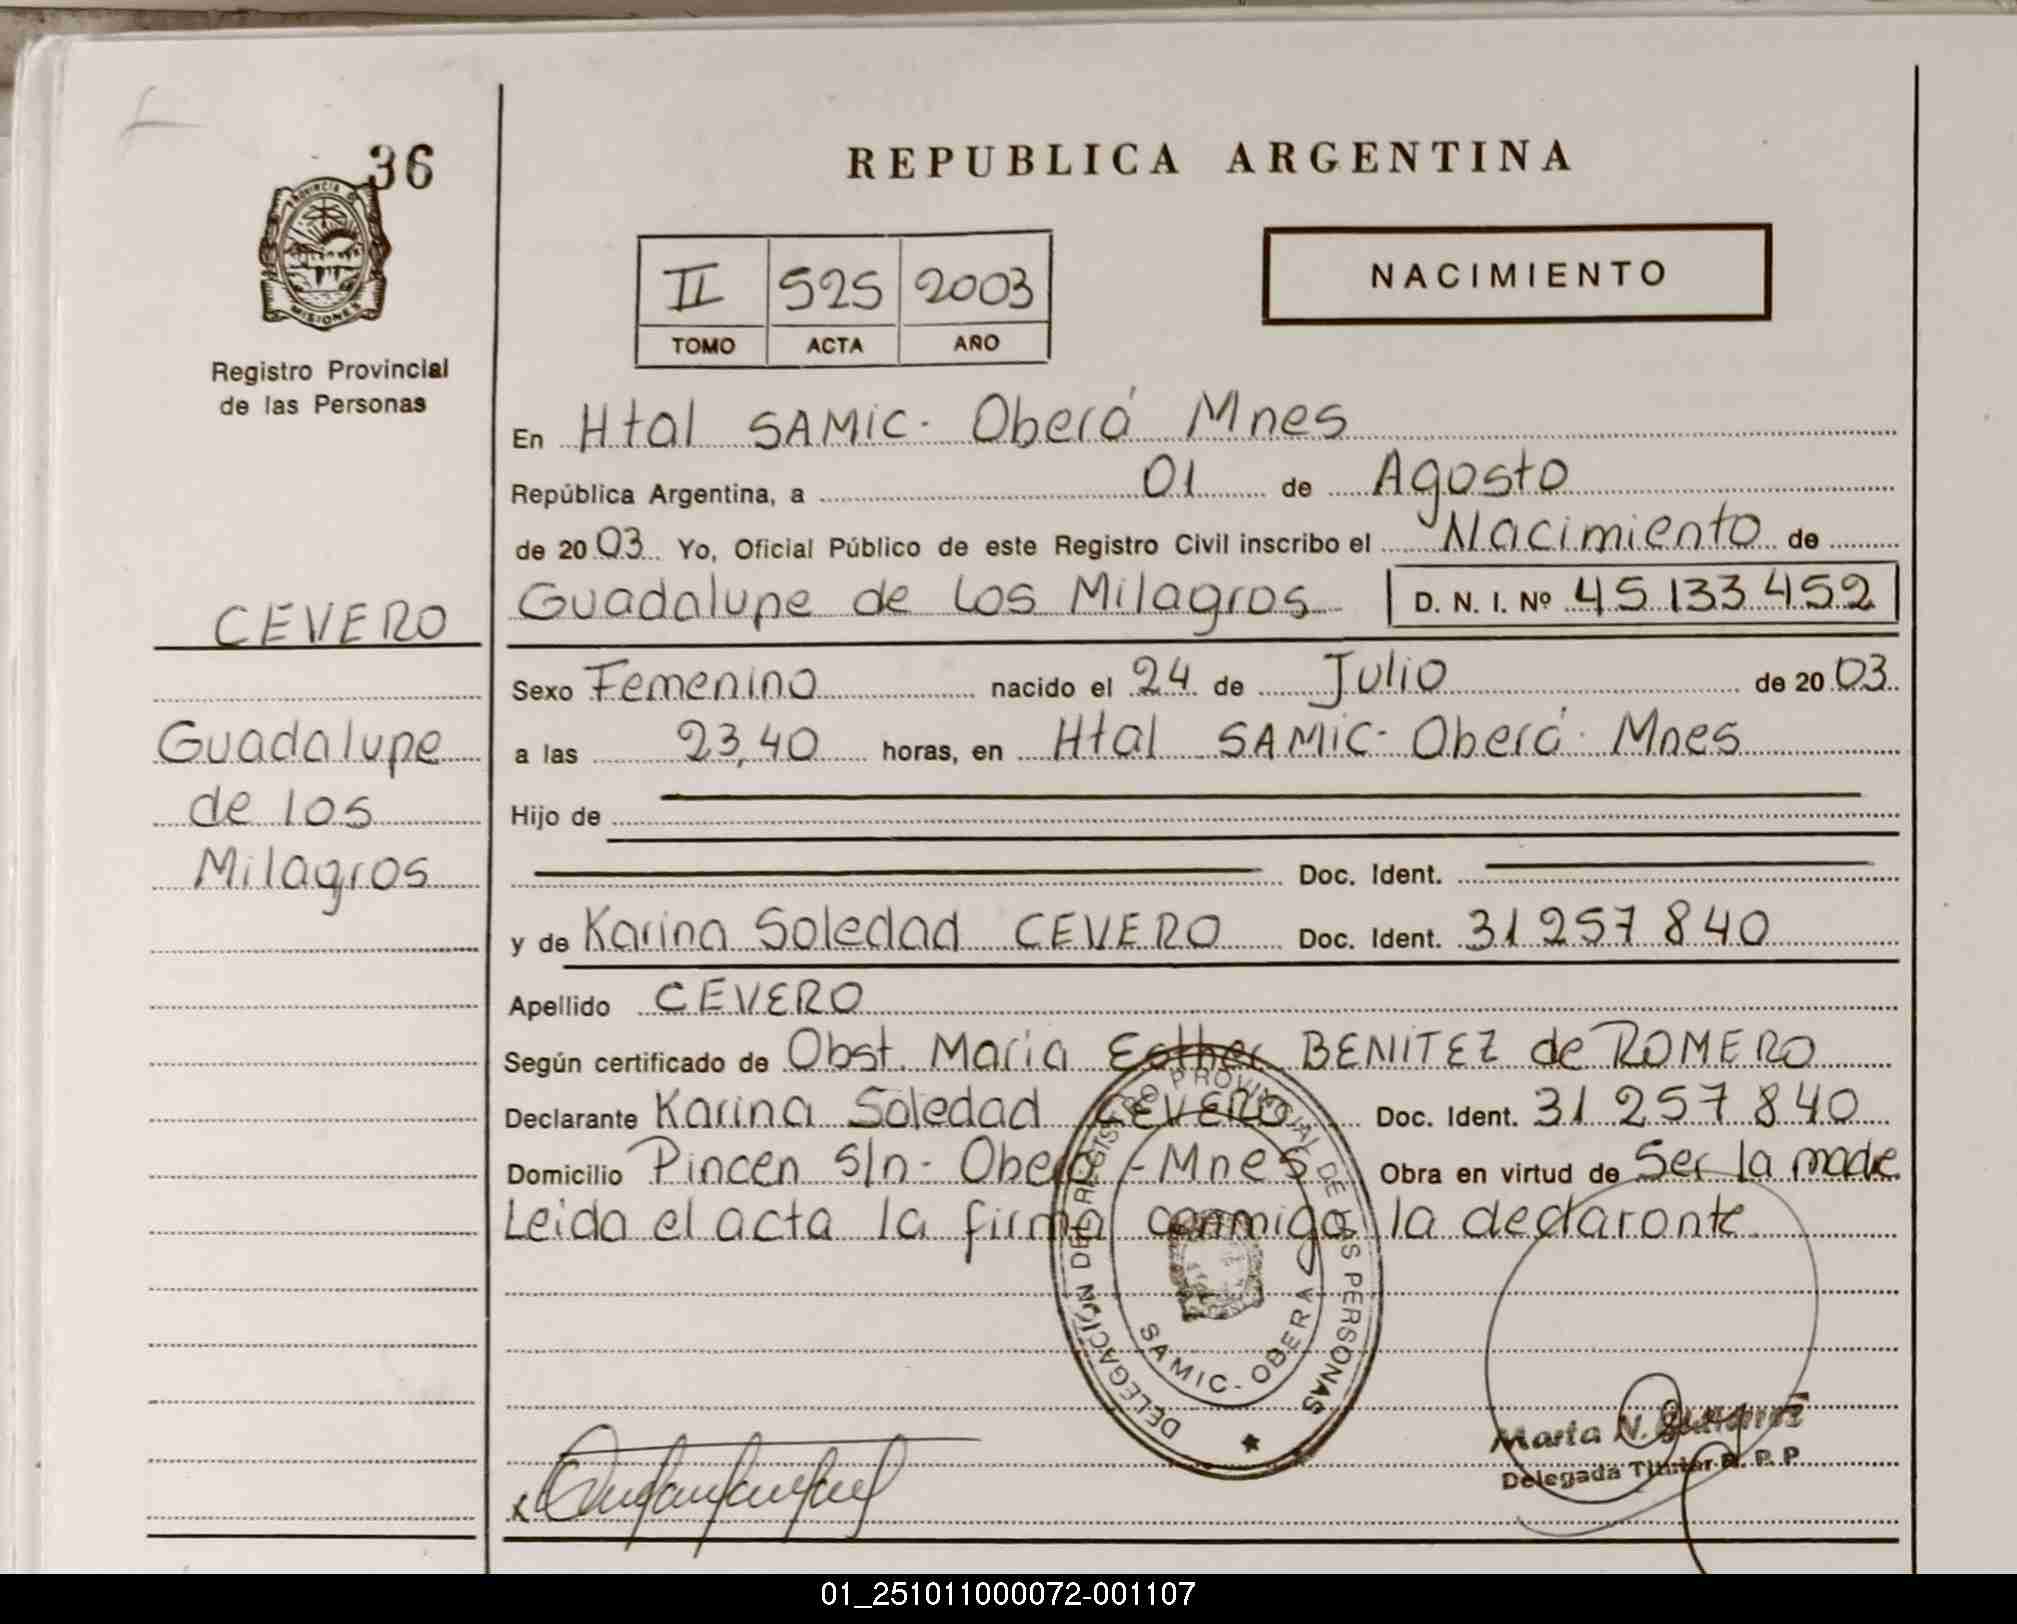 36
PROVINCIA DE
MISIONES
Registro Provincial
de las Personas
REPUBLICA ARGENTINA
II 525 2003
TOMO ACTA AÑO
NACIMIENTO
En Htal SAMIC. Oberá Mnes
República Argentina, a 01 de Agosto
de 2003 Yo, Oficial Público de este Registro Civil inscribo el Nacimiento de
CEVERO
Guadalupe de los Milagros D. N. I. Nº 45.133.452
Sexo Femenino nacido el 24 de Julio de 2003
Guadalupe
de los
Milagros
a las 23,40 horas, en Htal SAMIC- Oberá- Mnes
Hijo de
Doc. Ident.
y de Karina Soledad CEVERO Doc. Ident. 31.257.840
Apellido CEVERO
Según certificado de Obst. Maria Esther BENITEZ de ROMERO
Declarante Karina Soledad CEVERO Doc. Ident. 31.257.840
Domicilio Pincen s/n- Oberá -Mnes Obra en virtud de Ser la madre
Leida el acta la firma conmigo la declarante
DELEGACIÓN DEL REGISTRO PROVINCIAL DE LAS PERSONAS
SAMIC - OBERA
Marta N.
Delegada Titular R. P. P
01_251011000072-001107